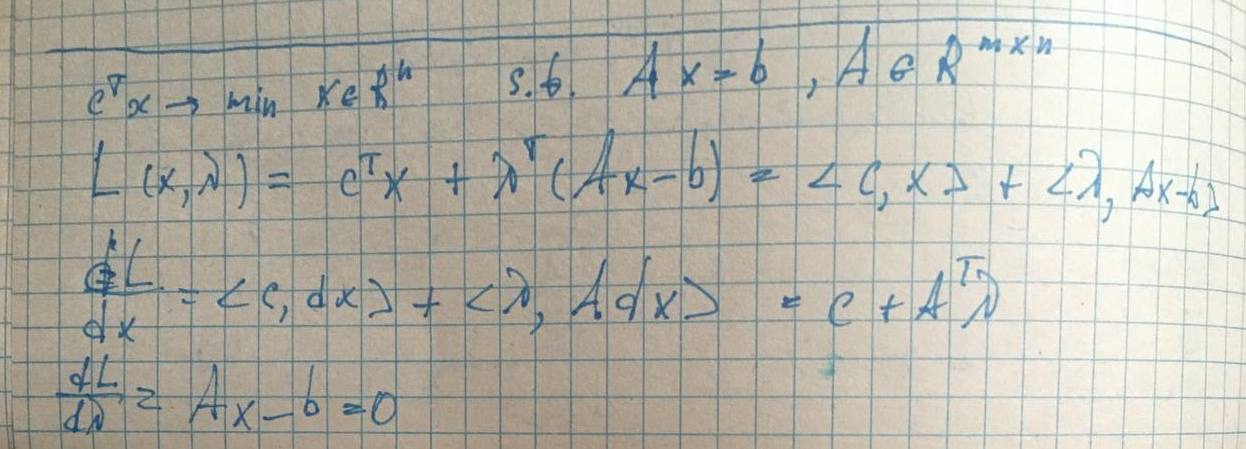 c^T x → min x ∈ R^n s.t. Ax = b , A ∈ R^{m×n}
L(x, λ) = c^T x + λ^T (Ax − b) = <c, x> + <λ, Ax−b>
dL/dx = <c, dx> + <λ, A dx> = c + A^T λ
dL/dλ = Ax − b = 0